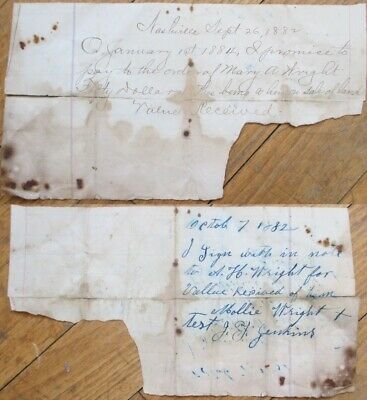 Nashville Sept 26, 1882
On January 1st 1884, I promise to
pay to the order of Mary A Wright
Fifty Dollars this being a lien on sale of land
Value Received.
Octob 7 1882
I Sign with in note
to A. H. Wright for
Vallue Recived of him
Mollie Wright +
Test J. F. Jenkins